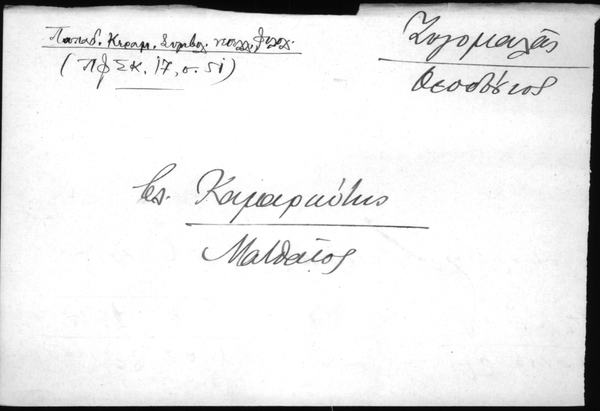 Παπαδ. Κεραμ. Συμβολ.
(ΠΦΣΚ, 17, σ. 51)
Ζυγομαλᾶς
Θεοδόσιος
βλ. Καμαριώτης
Ματθαῖος